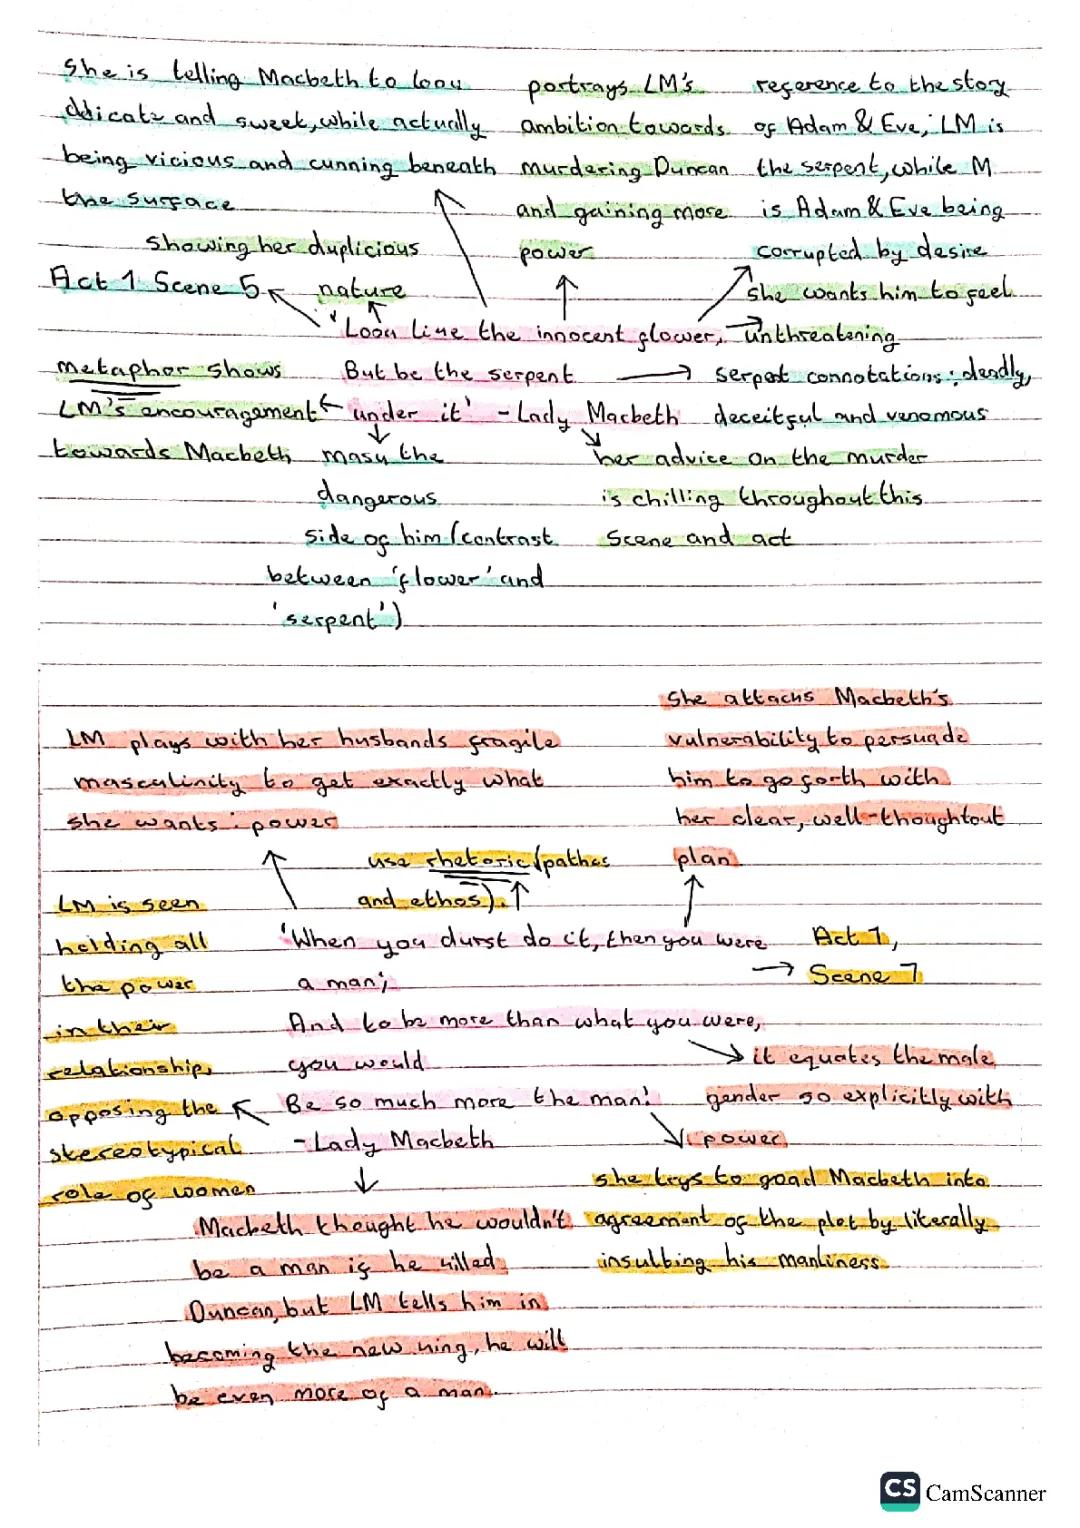 She is telling Macbeth to look
delicate and sweet, while actually
being vicious and cunning beneath
the surface
portrays LM's
ambition towards
murdering Duncan
and gaining more
power
reference to the story
of Adam & Eve; LM is
the serpent, while M
is Adam & Eve being
corrupted by desire
showing her duplicious
nature
Act 1 Scene 5
she wants him to feel
unthreatening
'Look like the innocent flower,
But be the serpent
under it' - Lady Macbeth
metaphor shows
LM's encouragement
towards Macbeth
serpent connotations: deadly,
deceitful and venomous
mask the
dangerous
side of him (contrast
between 'flower' and
'serpent')
her advice on the murder
is chilling throughout this
scene and act
LM plays with her husbands fragile
masculinity to get exactly what
she wants: power
She attacks Macbeth's
vulnerability to persuade
him to go forth with
her clear, well-thoughtout
plan
use rhetoric (pathos
and ethos)
LM is seen
holding all
the power
in their
relationship,
opposing the
stereotypical
role of women
'When you durst do it, then you were
a man;
And to be more than what you were,
you would
Be so much more the man!
- Lady Macbeth
Act 1,
Scene 7
it equates the male
gender so explicitly with
power
she trys to goad Macbeth into
agreement of the plot by literally
insulting his manliness.
Macbeth thought he wouldn't
be a man if he killed
Duncan, but LM tells him in
becoming the new king, he will
be even more of a man.
CS CamScanner